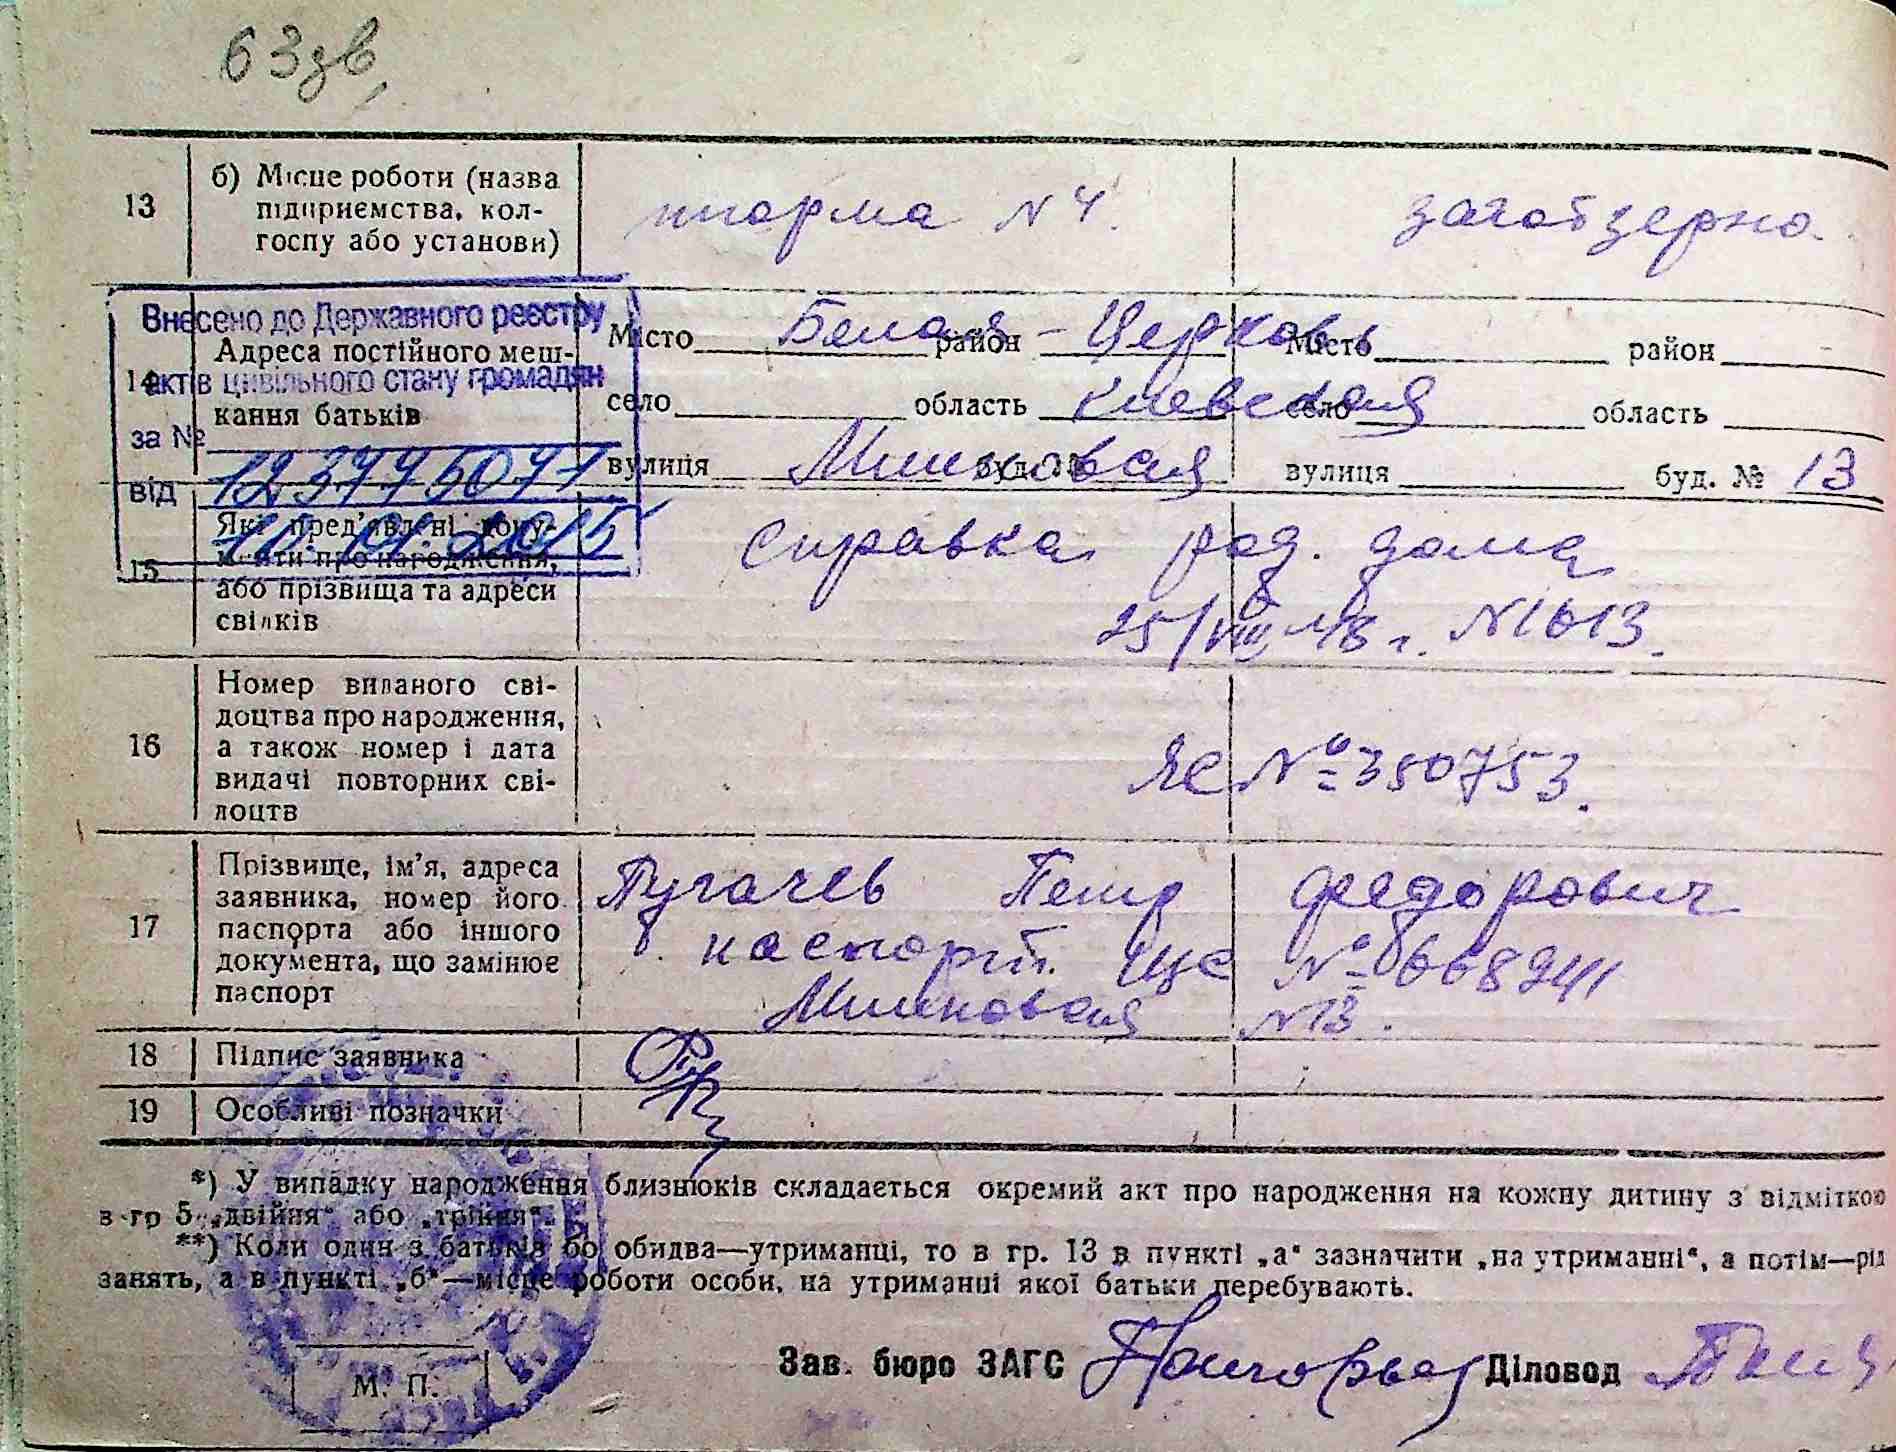 63 зв,
13 б) Місце роботи (назва підприємства, колгоспу або установи)
тюрма N 4.
заготзерно.
Внесено до Державного реєстру
актів цивільного стану громадян
за № 1237750
від
14 Адреса постійного мешкання батьків
Місто Белая - район Церковь Місто район
село область Киевская село область
вулиця буд. № вулиця буд. № 13
15 Які пред'явлені документи про народження, або прізвища та адреси свідків
Справка род. дома
25/VIII 48 г. N 1613.
16 Номер виданого свідоцтва про народження, а також номер і дата видачі повторних свідоцтв
ЯС № 350753.
17 Прізвище, ім'я, адреса заявника, номер його паспорта або іншого документа, що замінює паспорт
Пугачев Петр Федорович
паспорт. № 668241
N 13.
18 Підпис заявника
19 Особливі позначки
*) У випадку народження близнюків складається окремий акт про народження на кожну дитину з відміткою
в гр 5 „двійня“ або „трійня“.
**) Коли один з батьків бо обидва—утриманці, то в гр. 13 в пункті „а“ зазначити „на утриманні“, а потім—рід
занять, а в пункті „б“—місце роботи особи, на утриманні якої батьки перебувають.
Зав. бюро ЗАГС Діловод
М. П.